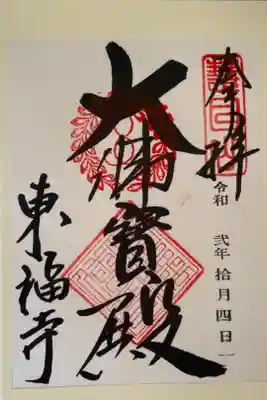 奉拝
令和 弐年 拾月四日
大佛寳殿
東福寺